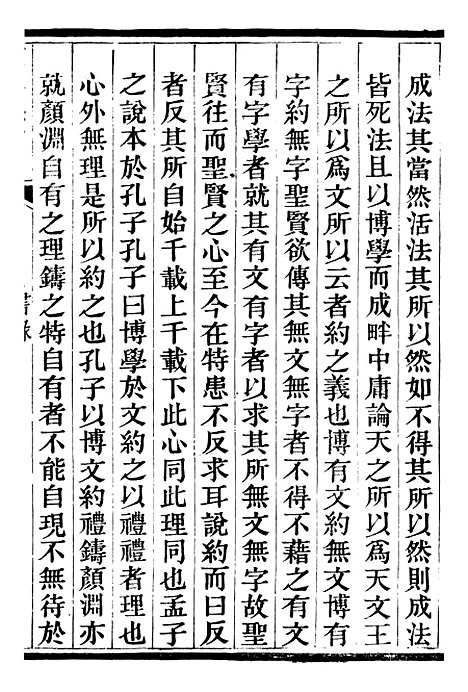 成法其當然活法其所以然如不得其所以然則成法
皆死法且以博學而成畔中庸論天之所以爲天文王
之所以爲文所以云者約之義也博有文約無文博有
字約無字聖賢欲傳其無文無字者不得不藉之有文
有字學者就其有文有字者以求其所無文無字故聖
賢往而聖賢之心至今在特患不反求耳說約而曰反
者反其所自始千載上千載下此心同此理同也孟子
之說本於孔子孔子曰博學於文約之以禮禮者理也
心外無理是所以約之也孔子以博文約禮鑄顏淵亦
就顏淵自有之理鑄之特自有者不能自現不無待於